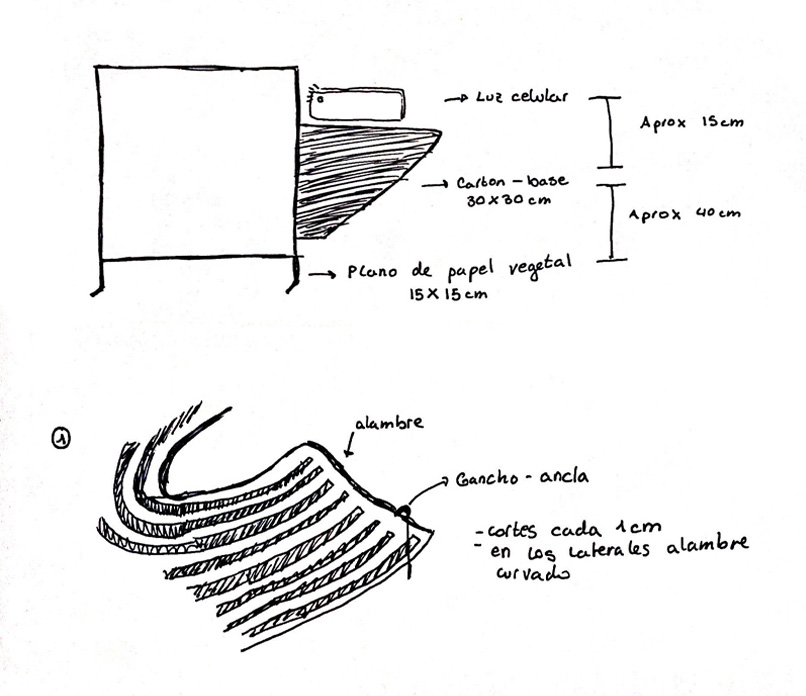 Luz celular
Aprox 15cm
Carton - base
30x30 cm
Aprox 40cm
Plano de papel vegetal
15x15cm
1
alambre
Gancho - ancla
- cortes cada 1cm
- en los laterales alambre
curvado